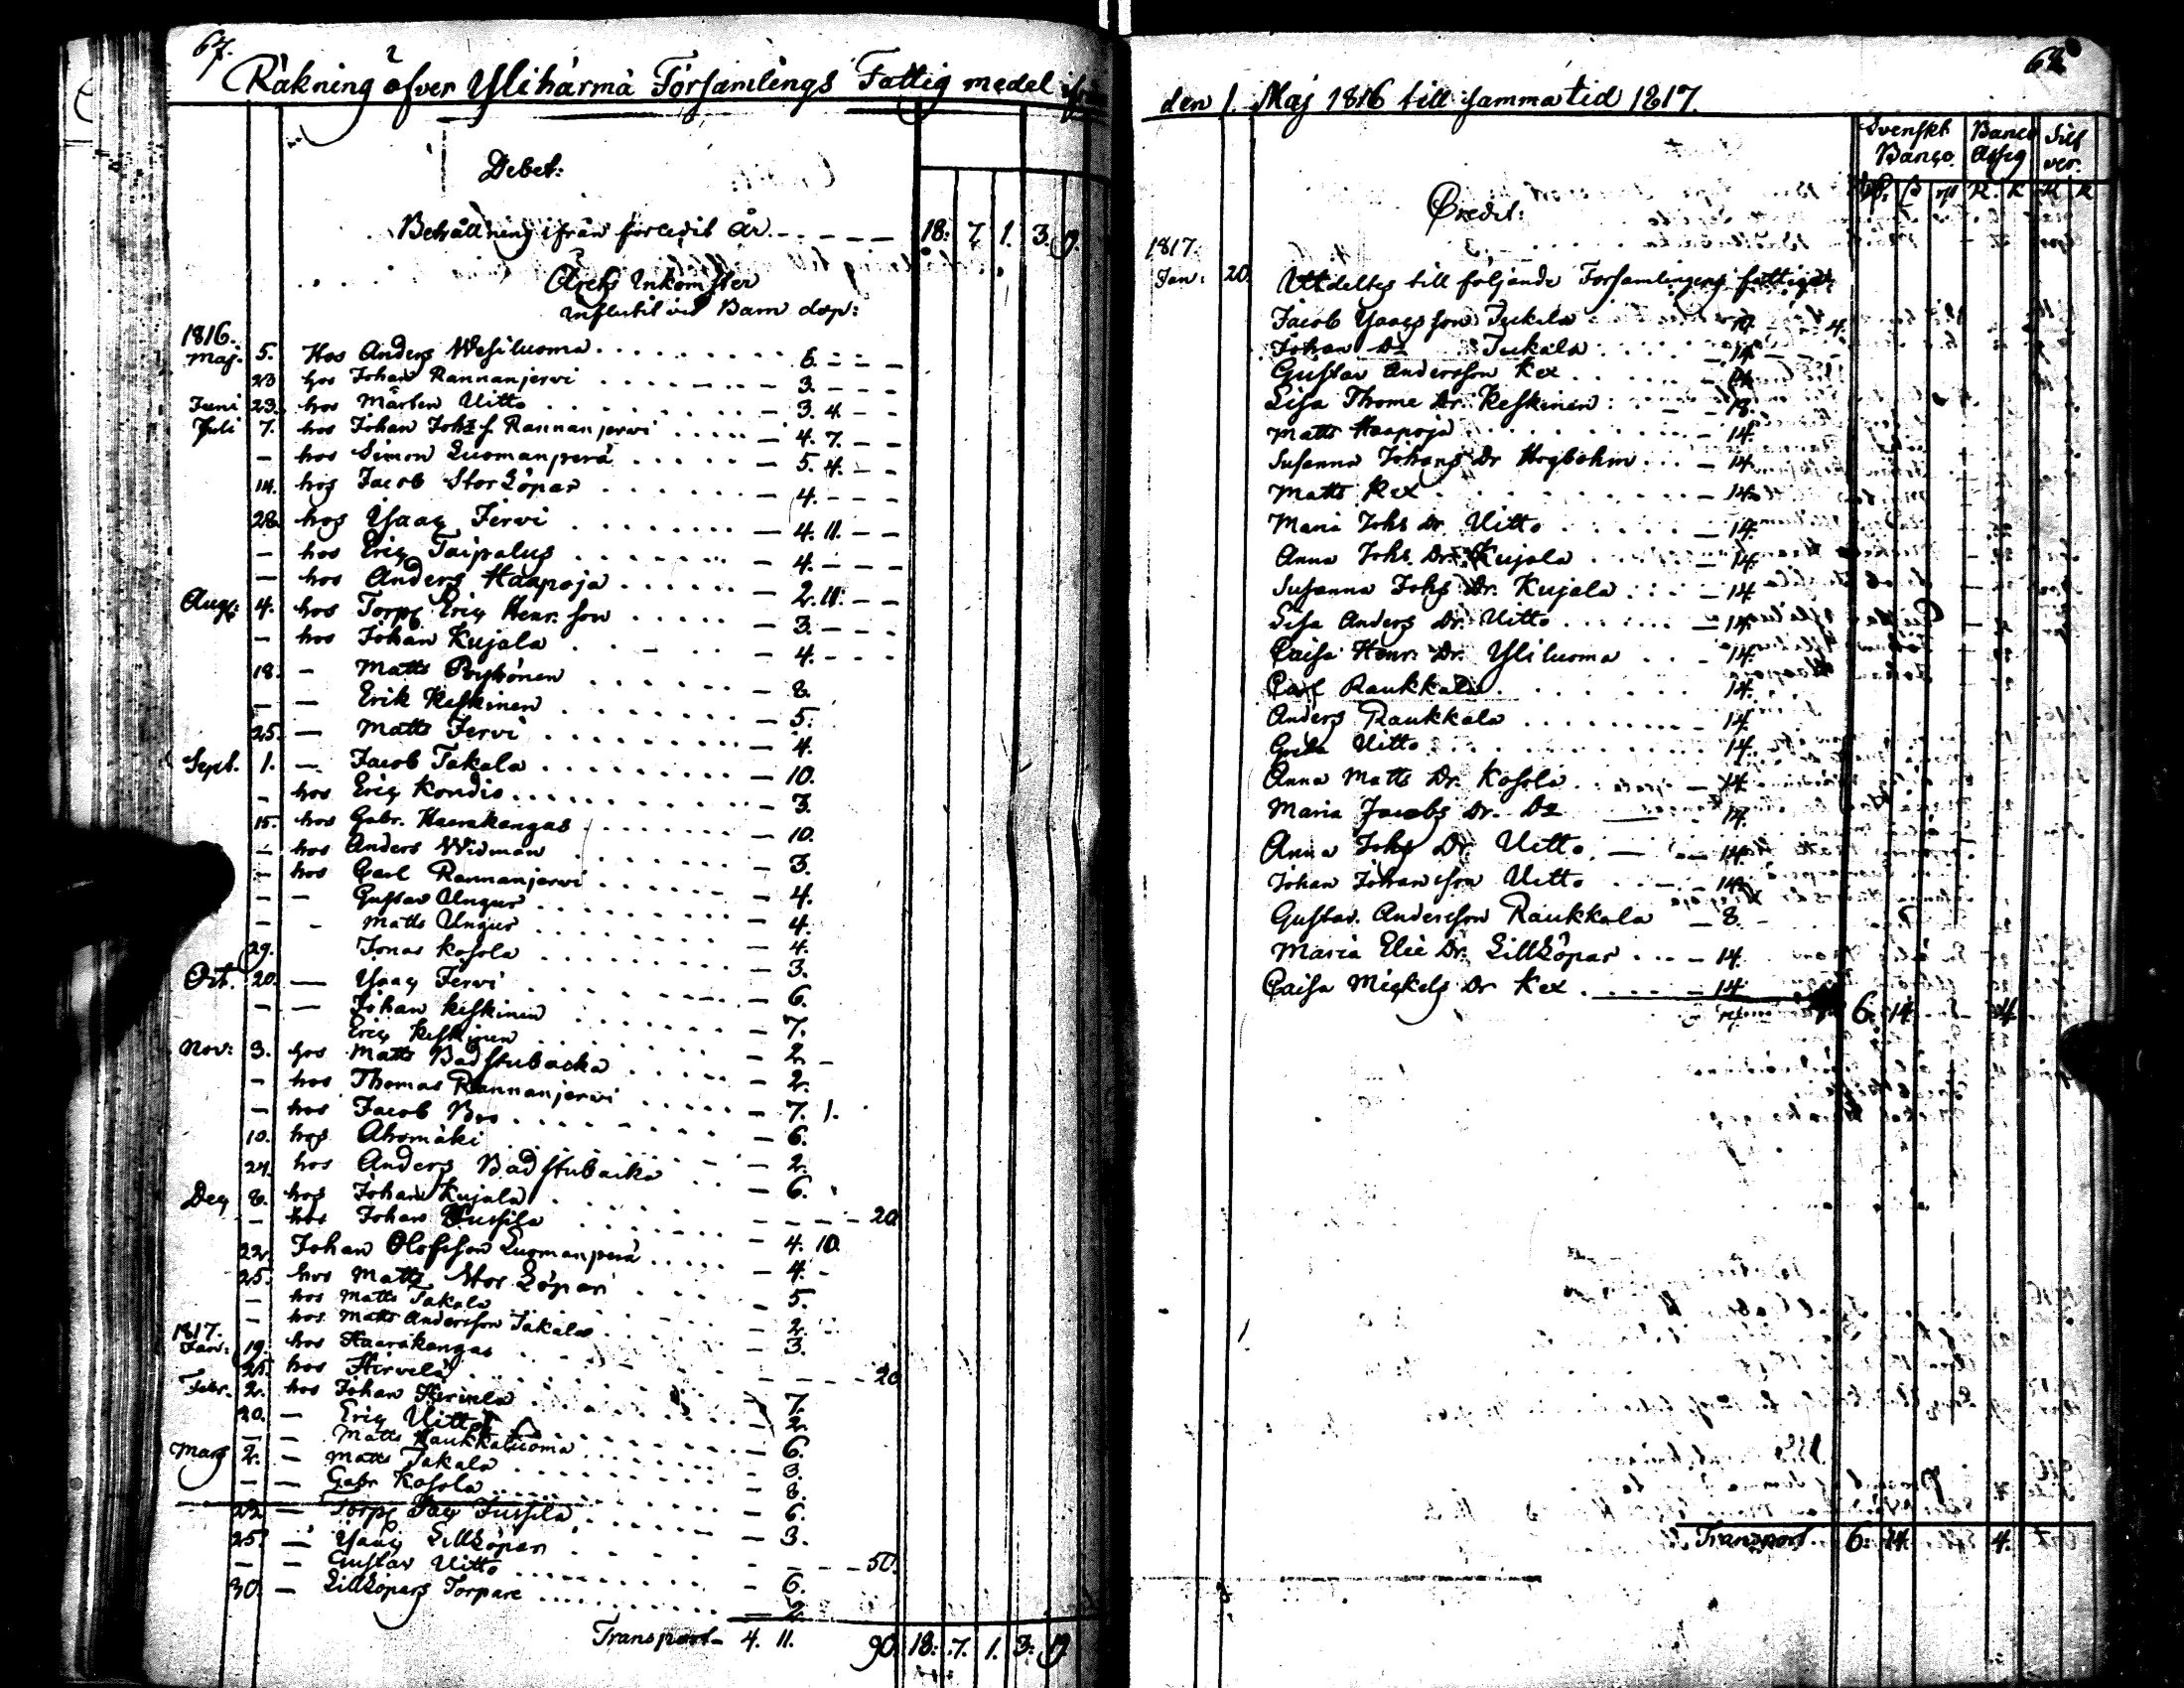 67.
Räkning öfver Ylihärmä Församlings Fattig medel ifrån
Debet:
Behållning ifrån förledit År. - - - - 18: 7. 1. 3. 9.
Årets Inkomster
influtit vid Barn dop:
1816.
Maj. 5. Hos Anders Wesiluoma . . . . . . 6. - - -
23 hos Johan Rannanjervi . . . . . . - 3. - - -
Juni 23. hos Mårten Uitto . . . . . . - 3. 4. - -
Juli 7. hos Johan Johs s. Rannanjervi . . . . . - 4. 7. - -
- hos Simon Luomanperä . . . . . - 5. 4. - -
14. hos Jacob Stor Löpar . . . . . . - 4. - - -
28. hos Ysaac Jervi . . . . . . - 4. 11. - -
- hos Eric Taipalus . . . . . . - 4. - - -
- hos Anders Haapoja . . . . . . - 2. 11. - -
Aug: 4. hos Torp. Eric Henr. son . . . . . - 3. - - -
- hos Johan Kujala . . . . . - 4. - - -
18. - Matts Pöyhönen . . . . . . - 8.
- - Erik Keskinen . . . . . . - 5.
25. - Matts Jervi . . . . . . - 4.
Sept. 1. - Jacob Takala . . . . . . - 10.
- hos Eric Kondis . . . . . . - 3.
15. hos Gabr. Haarakangas . . . . . . - 10.
- hos Anders Widman . . . . . . - 3.
- hos Carl Rannanjervi . . . . . . - 4.
- - Gustav Ungur . . . . . . - 4.
- - Matts Ungur . . . . . . - 4.
29. Jonas Kosola . . . . . . - 3.
Oct. 20. - Ysaac Jervi . . . . . . - 6.
- - Johan Keskinen . . . . . . - 7.
Eric Keskinen . . . . . . - 2. -
Nov: 3. hos Matts Badstubacka . . . . . - 2.
- hos Thomas Rannanjervi . . . . . - 7. 1.
- hos Jacob Bos . . . . . . - 6.
10. hos Ahomäki . . . . . . - 2.
24. hos Anders Badstubacka . . - 6.
Dec 8. hos Johan Kujala . . . . . - - - - 20.
- hos Johan Jussila . . . . . - 4. 10.
22. Johan Olofsson Luomanperä . . . . . - 4. -
25. hos Matts Stor Löpari . . . . - 5.
- hos Matts Takala . . . . . - 2.
- hos Matts Andersson Takala . . . . . - 3.
1817.
Jan: 19. hos Haarakangas . . . . . - - - - 20
25. hos Hirvelä . . . . . . - 7.
Febr. 2. hos Johan Hirvelä . . . . . . - 2.
20. - Eric Uitto . . . . . . - 6.
- - Matts Raukkaluoma . . . . . . - 3.
Mars 2. - Matts Takala . . . . . . - 8.
- - Gabr Kosola . . . . . . - 6.
22 - Torp. Jussila . . . . . . - 3.
25. - Ysaac Lillköpari . . . . . - - - - 50.
- - Gustav Uitto . . . . . . - 6.
30. - Lillköpars Torpare . . . . . . - 2.
Transport - 4. 11. 90. 18. 7. 1. 3. 9.
68
den 1. Maj 1816 till samma tid 1817.
Svenskt Banco. Banco Assig Silfver.
R. K R K
Credit:
1817.
Jan: 20. Utdeltes till följande Församlingens fattige:
Jacob Ysacsson Tukala 4.
Johan Do Tukala . . . . - 14.
Gustav Andersson Kex . . . . . . - 14.
Lisa Thome Dr. Keskinen . . . . - 18.
Matts Haapoja . . . . . . - 14.
Susanna Johans Dr Hogbohm . . . - 14.
Matts Kex . . . . . . - 14.
Maria Johs Dr. Uitto . . . . . . - 14.
Anna Johs. Dr. Kujala . . . . . . - 14.
Susanna Johs Dr. Kujala . . . - 14
Lisa Anders Dr. Uitto . . . . . . - 14.
Caisa Henr. Dr. Yliluoma . . - 14.
Carl Raukkala . . . . . . 14.
Anders Raukkala . . . . . . - 14.
Greta Uitto . . . . . . 14.
Anna Matts Dr. Kosola . . . . - 14.
Maria Jacobs Dr. Do - 14.
Anna Johs Dr. Uitto. - - 14.
Johan Johansson Uitto . . - - 14.
Gustav. Andersson Raukkala - 8. -
Maria Elie Dr. Lillköpar . . . - 14.
Caisa Mickels Dr Kex . . . . - 14.
6. 14. 4.
Transport. 6. 14. 4.